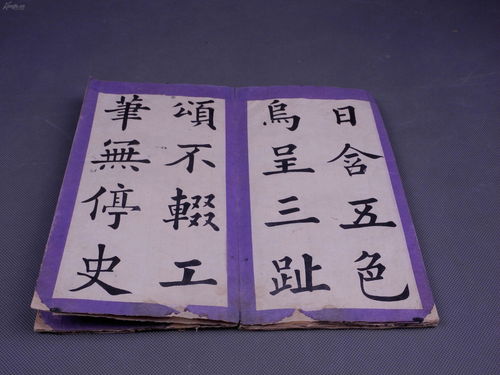 日含五色
烏呈三趾
頌不輟工
筆無停史